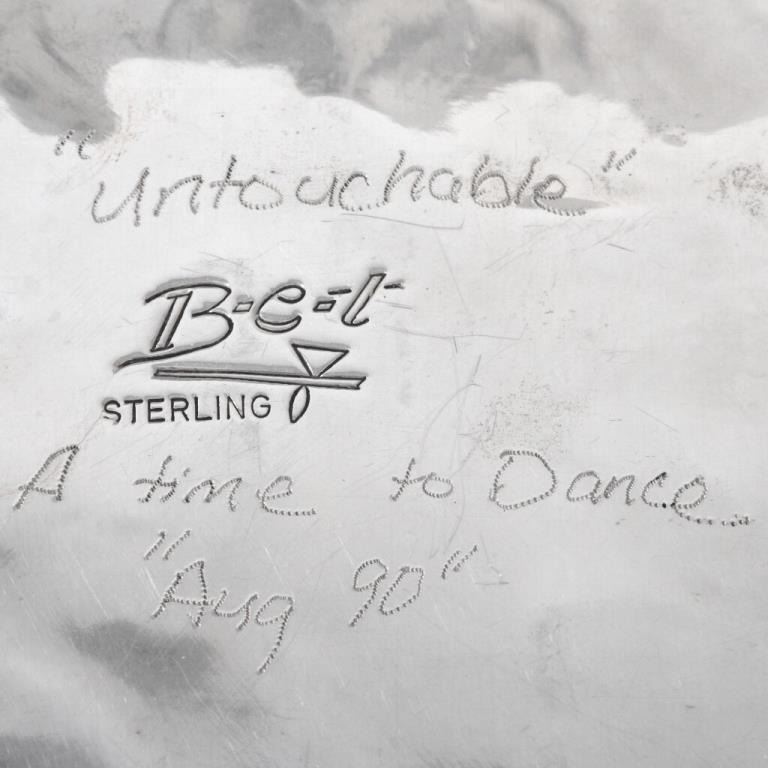 "Untouchable"
B-e-t
STERLING
A time to Dance
"Aug 90"